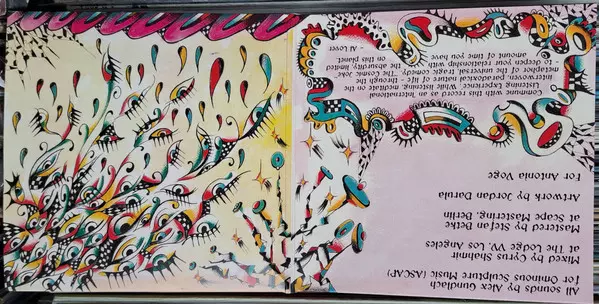 All sounds by Alex Gundlach
for Ominous Sculpture Music (ASCAP)
Mixed by Cyrus Shahmir
at The Lodge W, Los Angeles
Mastered by Stefan Betke
at Scape Mastering, Berlin
Artwork by Jordan Darula
For Antonia Voge
Commune with this record as an Intentional
Listening Experience. While listening, meditate on the
interwoven, paradoxical nature of life - through the
metaphor of the universal, tragic comedy, "The Cosmic Joke",
- to deepen your relationship with the absurdity the limited
amount of time you have on this planet.
- Al Lover